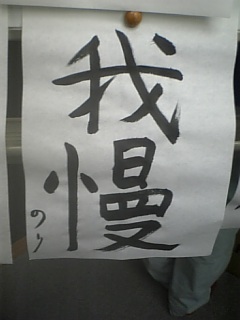 我慢
のり